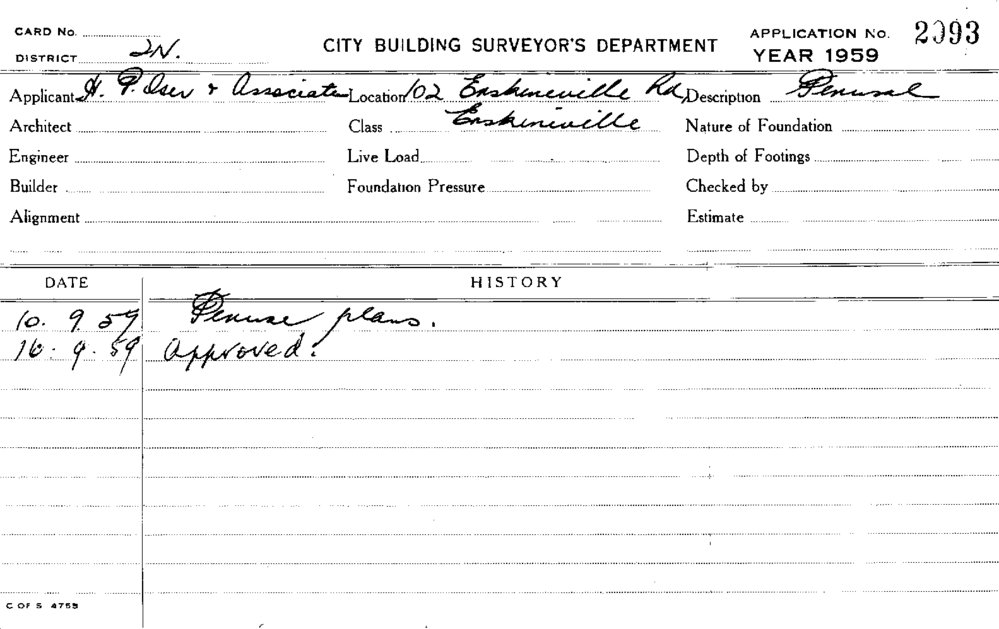 CARD No.
DISTRICT 2N.
CITY BUILDING SURVEYOR'S DEPARTMENT
APPLICATION No. 2093
YEAR 1959
Applicant H. P. Oser & Associates Location 102 Erskineville Rd, Description Perusal
Architect Class Erskineville Nature of Foundation
Engineer Live Load Depth of Footings
Builder Foundation Pressure Checked by
Alignment Estimate
DATE HISTORY
10. 9. 59 Peruse plans.
16. 9. 59 Approved.
C OF S 4755